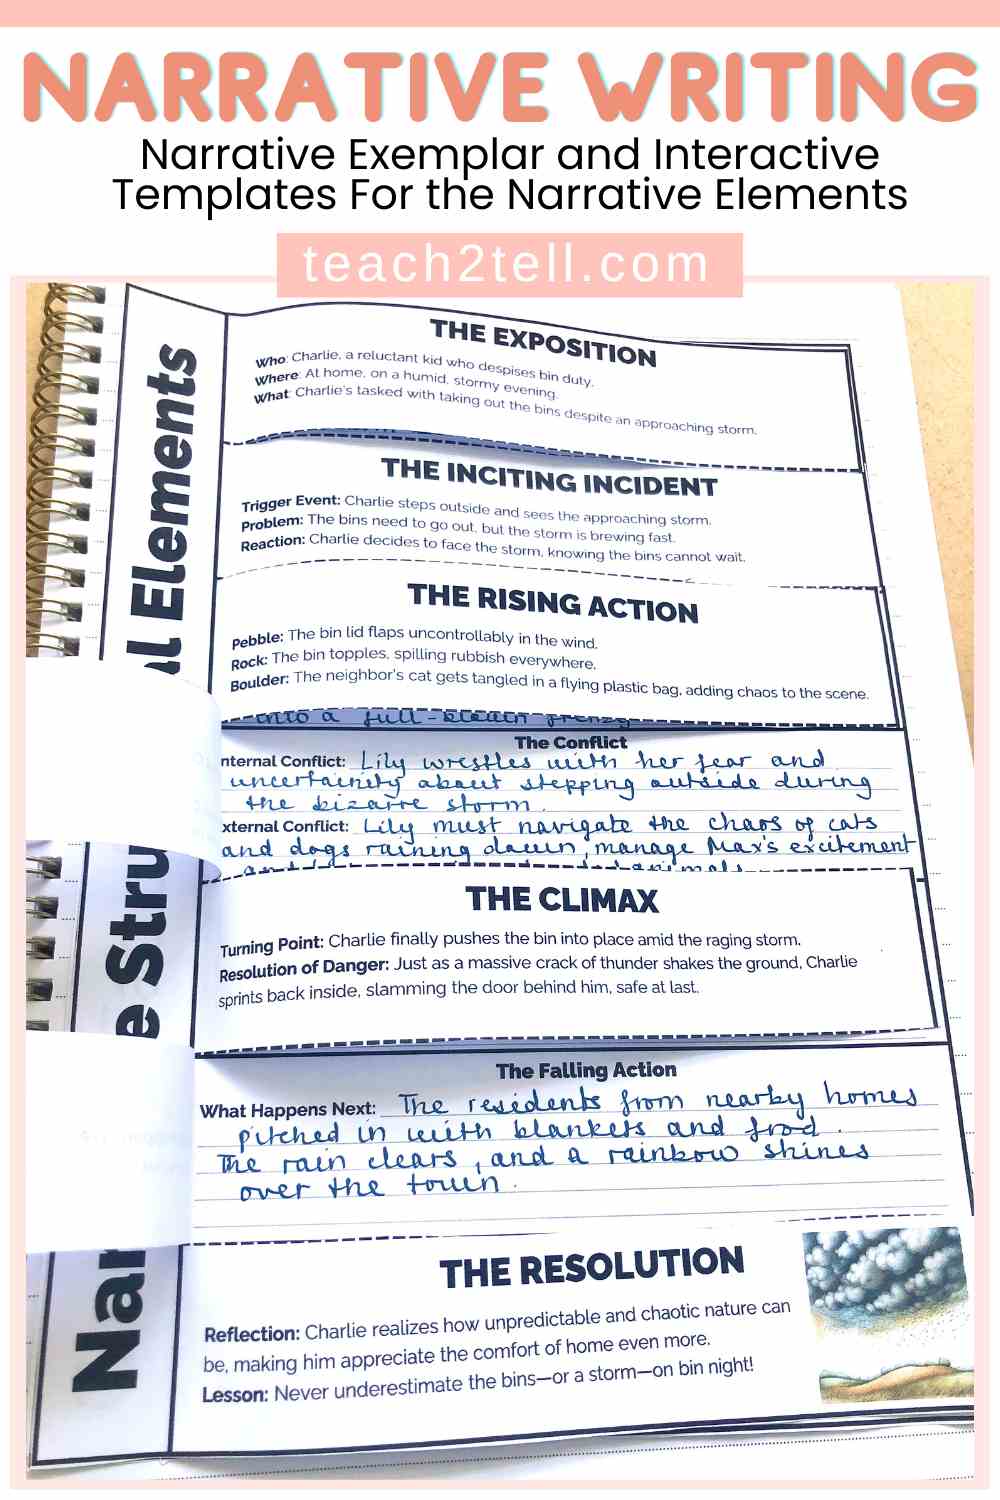 NARRATIVE WRITING
Narrative Exemplar and Interactive
Templates For the Narrative Elements
teach2tell.com
al Elements
e Stru
Nar
THE EXPOSITION
Who: Charlie, a reluctant kid who despises bin duty.
Where: At home, on a humid, stormy evening.
What: Charlie's tasked with taking out the bins despite an approaching storm.
THE INCITING INCIDENT
Trigger Event: Charlie steps outside and sees the approaching storm.
Problem: The bins need to go out, but the storm is brewing fast.
Reaction: Charlie decides to face the storm, knowing the bins cannot wait.
THE RISING ACTION
Pebble: The bin lid flaps uncontrollably in the wind.
Rock: The bin topples, spilling rubbish everywhere.
Boulder: The neighbor's cat gets tangled in a flying plastic bag, adding chaos to the scene.
into a full-blown frenzy
The Conflict
nternal Conflict: Lily wrestles with her fear and
uncertainity about stepping outside during
the bizarre storm.
xternal Conflict: Lily must navigate the chaos of cats
and dogs raining down, manage Max's excitement
THE CLIMAX
Turning Point: Charlie finally pushes the bin into place amid the raging storm.
Resolution of Danger: Just as a massive crack of thunder shakes the ground, Charlie
sprints back inside, slamming the door behind him, safe at last.
The Falling Action
What Happens Next: The residents from nearby homes
pitched in with blankets and food.
The rain clears, and a rainbow shines
over the town.
THE RESOLUTION
Reflection: Charlie realizes how unpredictable and chaotic nature can
be, making him appreciate the comfort of home even more.
Lesson: Never underestimate the bins—or a storm—on bin night!